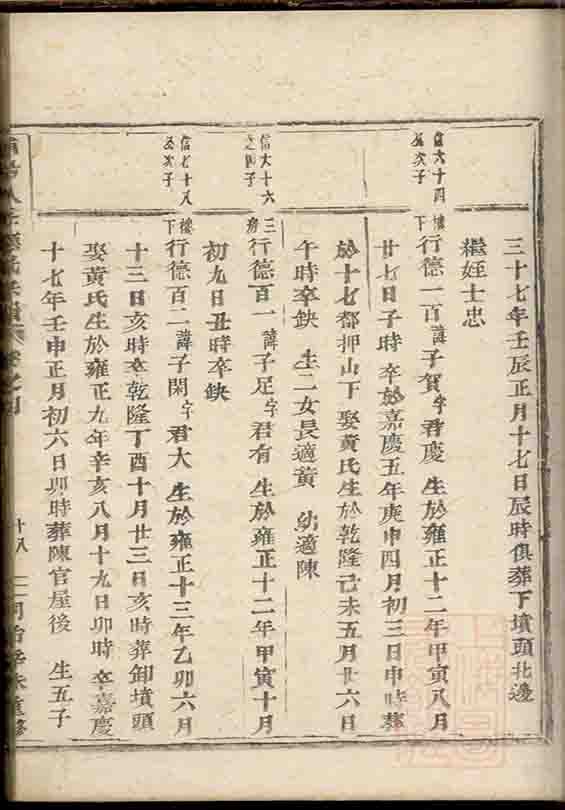 三十七年壬辰正月十七日辰時俱葬下墳頭北邊
繼姪士忠
信六十四
公次子
樓下
行德一百諱子賀字君慶 生於雍正十二年甲寅八月
廿七日子時 卒於嘉慶五年庚申四月初三日申時葬
於十七都押山下 娶黃氏生於乾隆己未五月廿六日
午時卒缺 生二女長適黃 幼適陳
信六十六
公四子
三房
行德百一諱子足字君有 生於雍正十二年甲寅十月
初九日丑時卒缺
信七十八
公次子
樓下
行德百二諱子閑字君大 生於雍正十三年乙卯六月
十三日亥時卒乾隆丁酉十月廿三日亥時葬卸墳頭
娶黃氏生於雍正九年辛亥八月十九日卯時 卒嘉慶
十七年壬申正月初六日卯時葬陳官屋後 生五子
十八